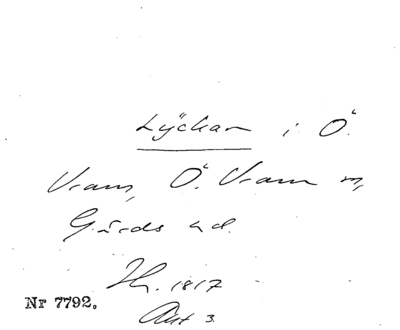 Lyckan i Ö.
Vram, Ö. Vram sn,
Gärds hd.
Hr. 1817
Nr 7792.
Akt 3